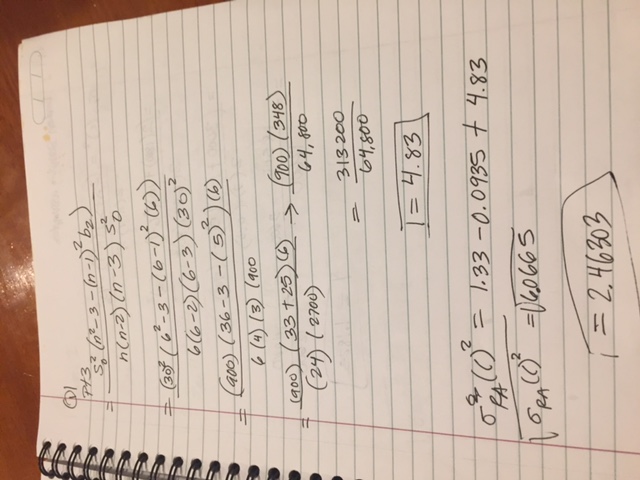 Q1
pt3
= S₀² (n² - 3 - (n-1)² b₂) / n(n-2)(n-3) S₀²
= (30)² (6² - 3 - (6-1)² (6)) / 6(6-2)(6-3)(30)²
= (900)(36-3-(5)²)(6) / 6(4)(3)(900
= (900)(33+25)(6) / (24)(2700) → (900)(348) / 64,800
= 313200 / 64,800
= 4.83
σ²RA(C)² = 1.33 - 0.0935 + 4.83
√σRA(C)² = √6.0665
= 2.46303